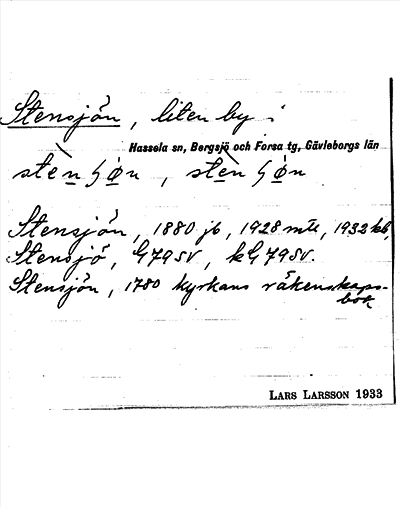 Stensjön, liten by i
Hassela sn, Bergsjö och Forsa tg, Gävleborgs län
stèn ʃøn, stèn ʃøn
Stensjön, 1880 jb, 1928 mtl, 1932 kb,
Stensjö, G79SV, kG79SV.
Stensjön, 1780 kyrkans räkenskaps-
bok
LARS LARSSON 1933